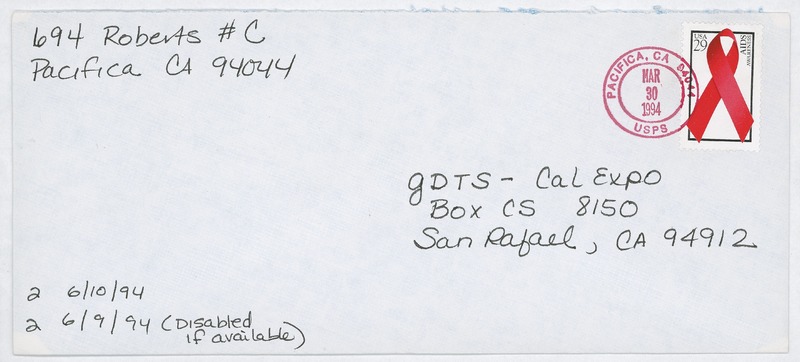 694 Roberts #C
Pacifica CA 94044
USA
29
AIDS
AWARENESS
PACIFICA, CA 94044
MAR
30
1994
USPS
gDTS - Cal Expo
Box CS 8150
San Rafael, CA 94912
2 6/10/94
2 6/9/94 (Disabled
if available)